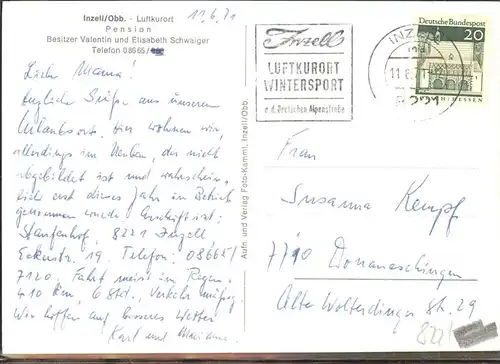 Inzell/Obb. - Luftkurort
Pension
Besitzer Valentin und Elisabeth Schwaiger
Telefon 08665/
11.6.71
Liebe Mama!
Herzliche Grüße aus unserem
Urlaubsort. Hier wohnen wir,
allerdings im Neubau, der nicht
abgebildet ist und wahrschein-
lich erst dieses Jahr in Betrieb
genommen wurde. Anschrift ist:
Staufenhof, 8221 Inzell
19. Telefon: 08665/
7120. Fahrt meist im Regen,
410 Km, 6 Std. Verkehr mäßig.
Wir hoffen auf besseres Wetter
Karl und Marianne
Aufn. und Verlag Foto-Kamml, Inzell/Obb.
Inzell
LUFTKURORT
WINTERSPORT
a.d. Deutschen Alpenstraße
INZELL
11.6.71
8221
Deutsche Bundespost
20
LORSCH/HESSEN
Frau
Susanna Kempf
7710 Donaueschingen
Alte Wolterdinger St. 29
822/